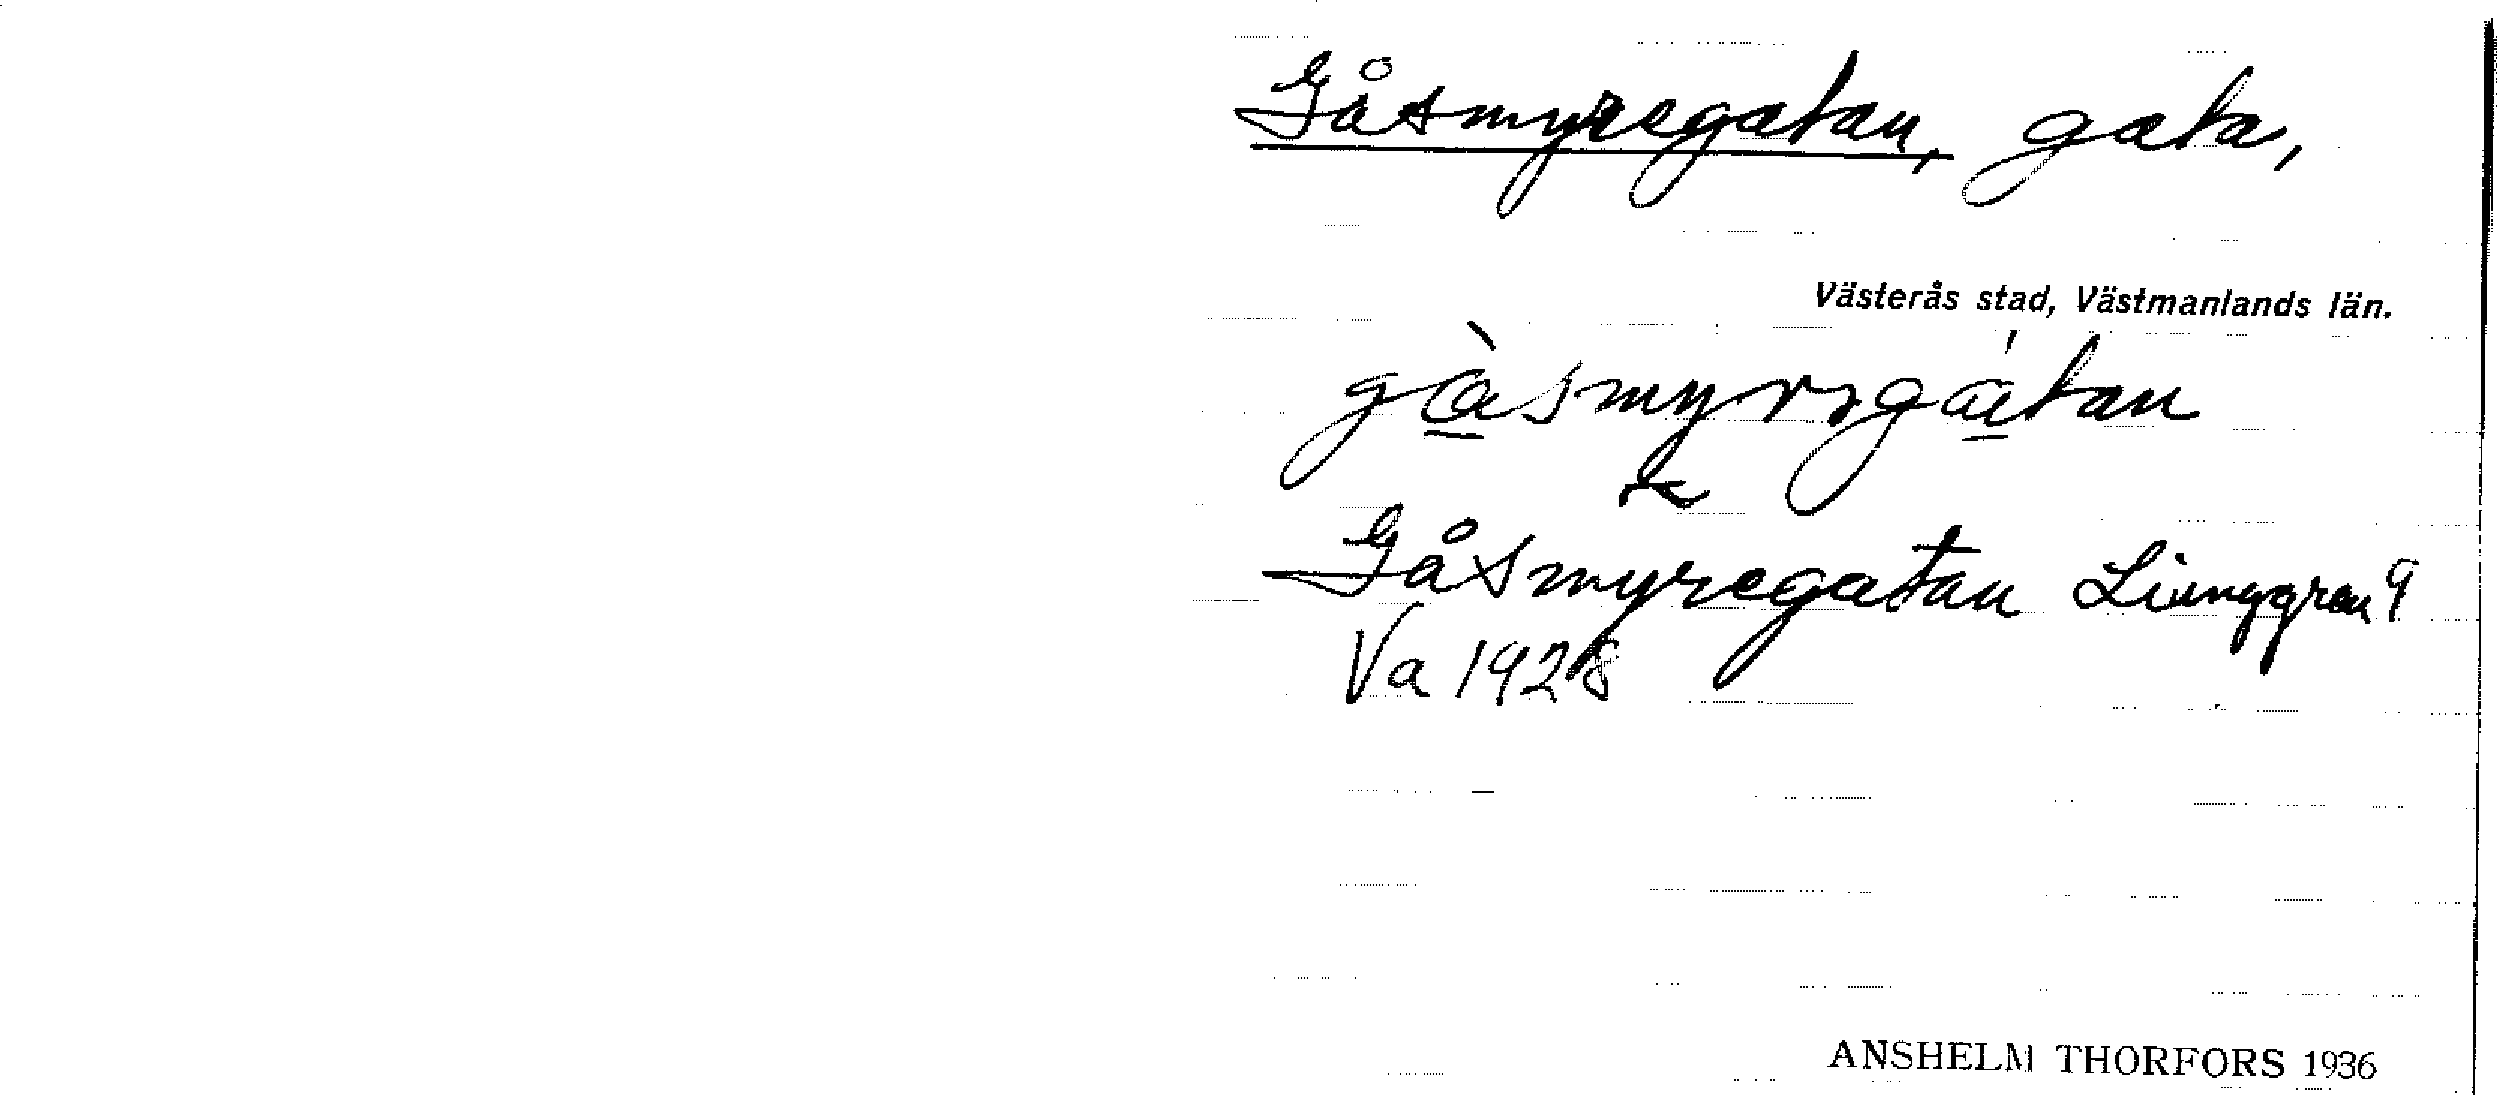 Gåsmyregatan, gata,
Västerås stad, Västmanlands län.
Gåsmyregatan Ljunggren 9
Va 1928
ANSHELM THORFORS 1936